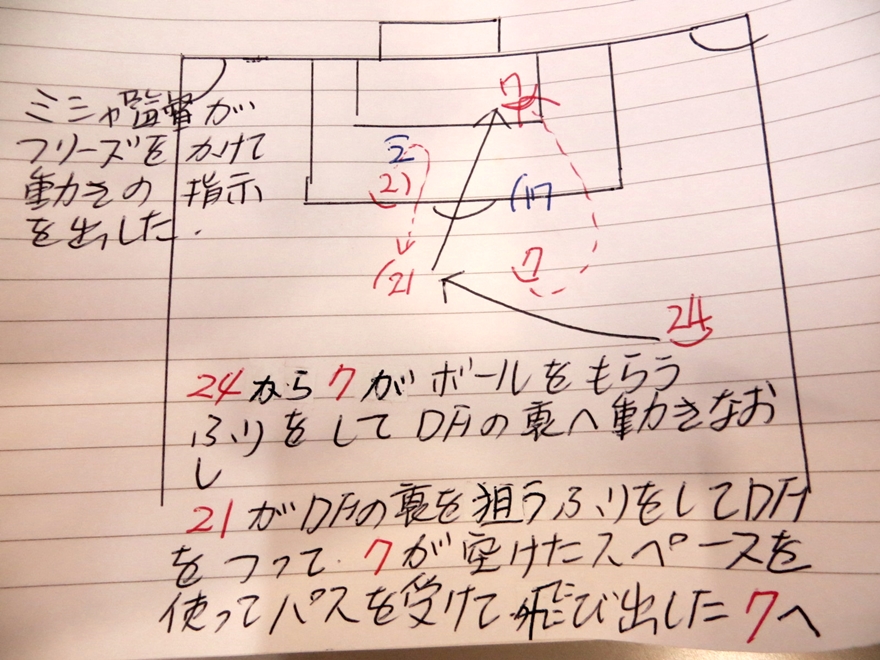 ミシャ監督が
フリーズをかけて
動きの 指示
を出した.
7
2
21
17
21
7
24
24から7がボールをもらう
ふりをしてDFの裏へ動きなお
し
21がDFの裏を狙うふりをしてDF
をつって.7が空けたスペースを
使ってパスを受けて.飛び出した7へ